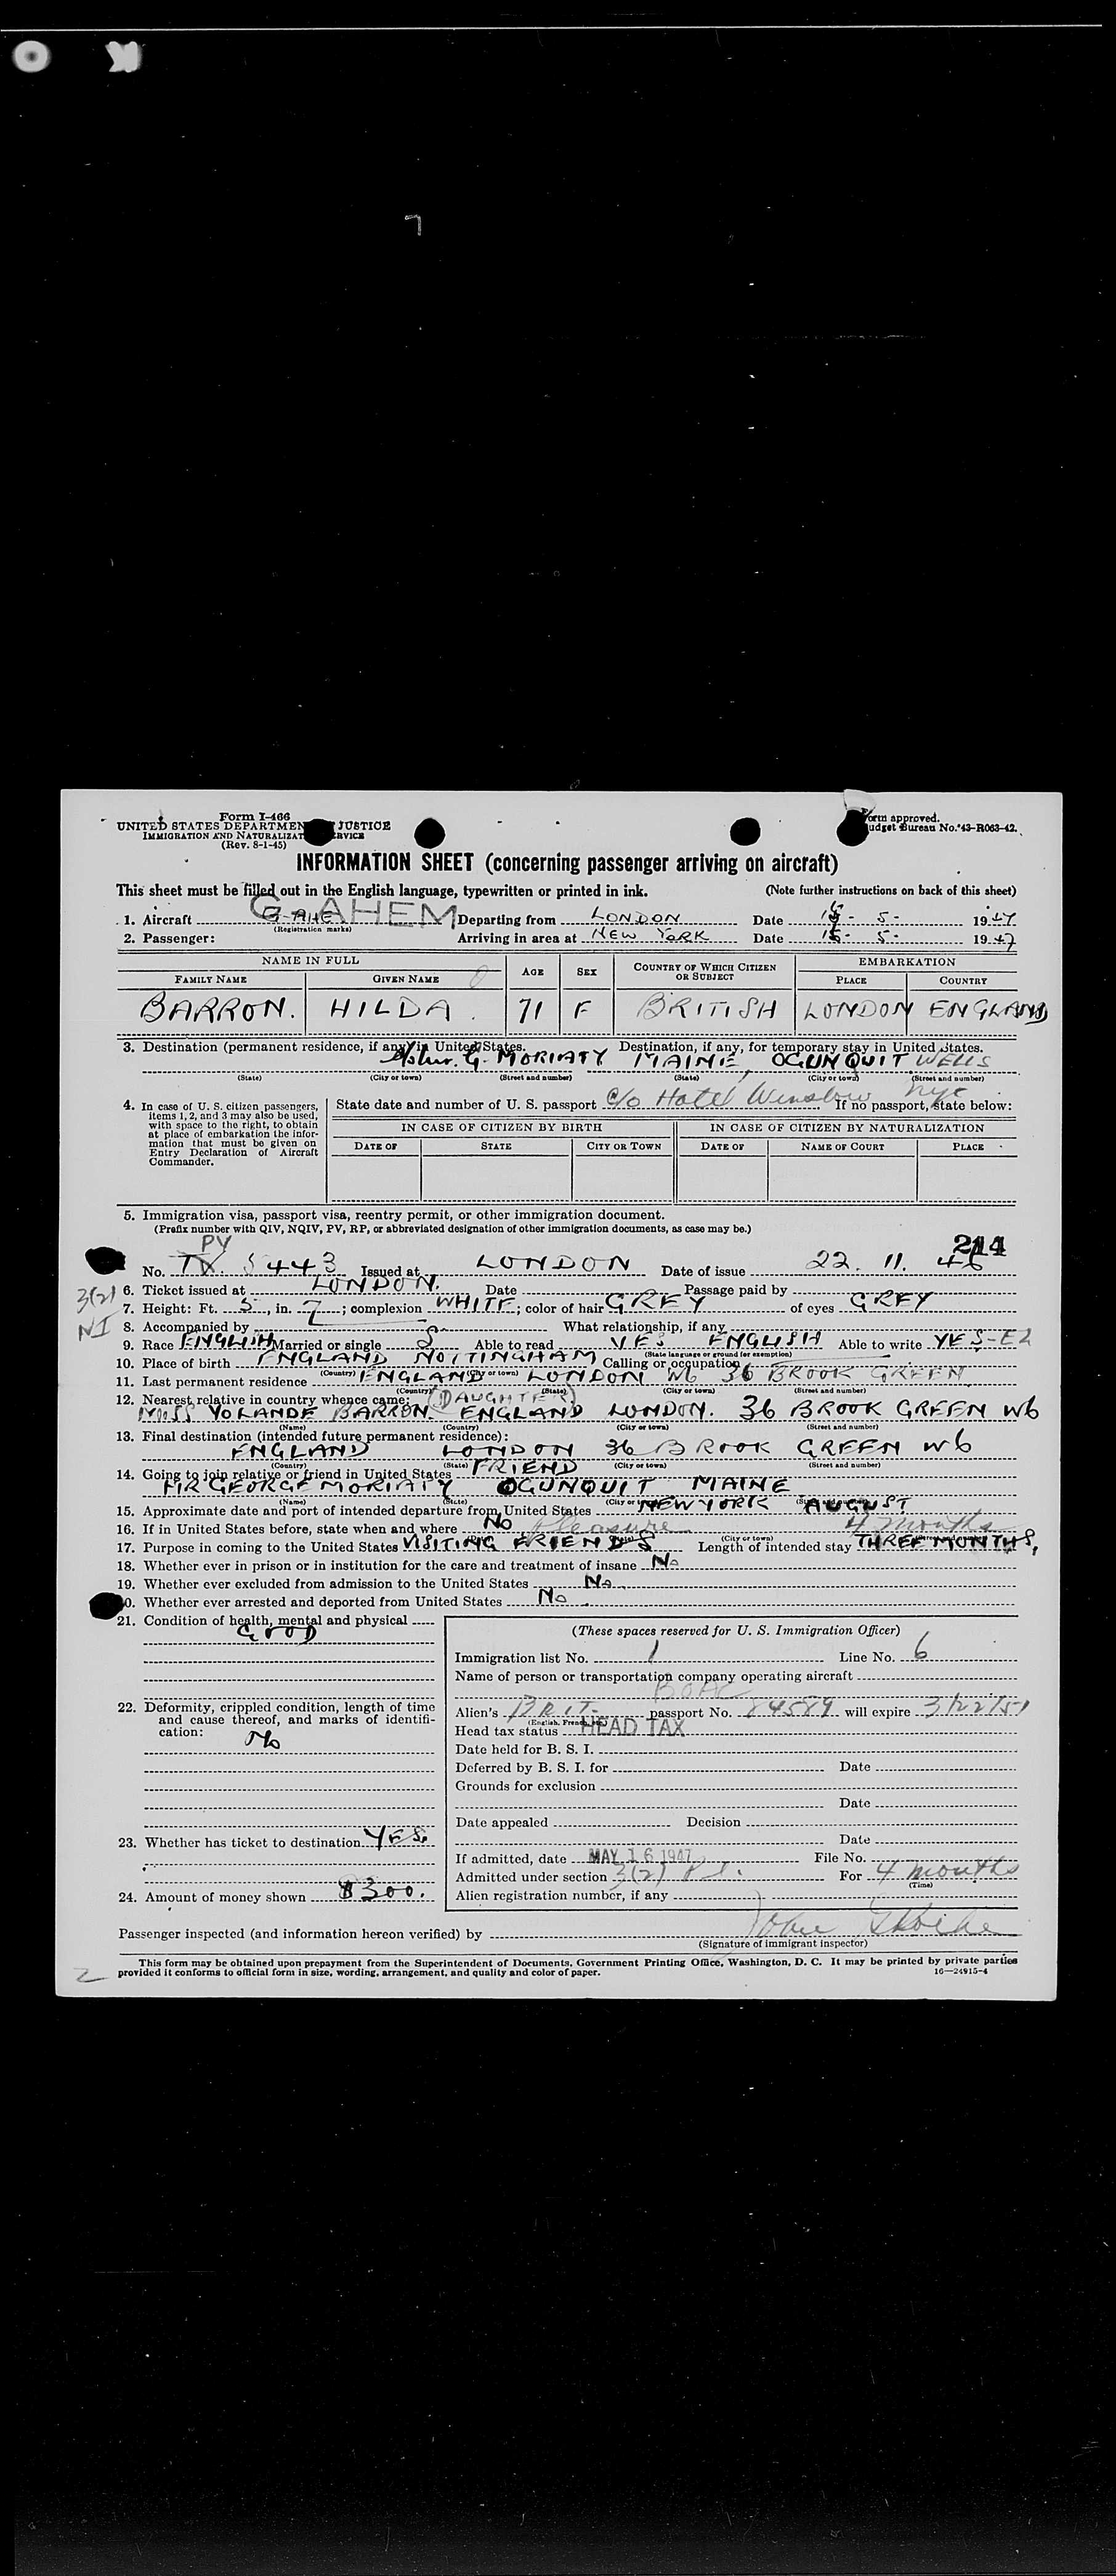 Form I-466
UNITED STATES DEPARTMENT JUSTICE
IMMIGRATION AND NATURALIZAT RVICE
(Rev. 8-1-45)
Form approved.
udget Bureau No. 43-R063-42.
INFORMATION SHEET (concerning passenger arriving on aircraft)
This sheet must be filled out in the English language, typewritten or printed in ink. (Note further instructions on back of this sheet)
1. Aircraft G-AHEM Departing from LONDON Date 5- 1947
(Registration marks)
2. Passenger: Arriving in area at NEW YORK Date 5- 1947
NAME IN FULL AGE SEX COUNTRY OF WHICH CITIZEN OR SUBJECT EMBARKATION
FAMILY NAME GIVEN NAME PLACE COUNTRY
BARRON. HILDA. 71 F BRITISH LONDON ENGLAND
3. Destination (permanent residence, if any) in United States. Destination, if any, for temporary stay in United States.
G. MORIATY MAINE, OGUNQUIT WELLS
(State) (City or town) (Street and number) (State) (City or town) (Street and number)
4. In case of U. S. citizen passengers, items 1, 2, and 3 may also be used, with space to the right, to obtain at place of embarkation the information that must be given on Entry Declaration of Aircraft Commander.
State date and number of U. S. passport c/o Hotel Winslow NYC If no passport, state below:
IN CASE OF CITIZEN BY BIRTH IN CASE OF CITIZEN BY NATURALIZATION
DATE OF STATE CITY OR TOWN DATE OF NAME OF COURT PLACE
5. Immigration visa, passport visa, reentry permit, or other immigration document.
(Prefix number with QIV, NQIV, PV, RP, or abbreviated designation of other immigration documents, as case may be.)
PV
214
No. 5443 Issued at LONDON Date of issue 22. 11. 46
3(2)
NI
6. Ticket issued at LONDON. Date Passage paid by
7. Height: Ft. 5, in. 7; complexion WHITE; color of hair GREY of eyes GREY
8. Accompanied by What relationship, if any
9. Race ENGLISH Married or single S Able to read YES ENGLISH Able to write YES-E2
(State language or ground for exemption)
10. Place of birth ENGLAND NOTTINGHAM Calling or occupation
(Country) (City or town)
11. Last permanent residence ENGLAND LONDON W6 36 BROOK GREEN
(Country) (State) (City or town) (Street and number)
12. Nearest relative in country whence came: (DAUGHTER)
MISS YOLANDE BARRON. ENGLAND LONDON. 36 BROOK GREEN W6
(Name) (Country) (City or town) (Street and number)
13. Final destination (intended future permanent residence):
ENGLAND LONDON 36 BROOK GREEN W6
(Country) (State) (City or town) (Street and number)
14. Going to join relative or friend in United States FRIEND
MR GEORGE MORIATY OGUNQUIT MAINE
(Name) (State) (City or town) (Street and number)
15. Approximate date and port of intended departure from United States NEW YORK AUGUST
16. If in United States before, state when and where No
Pleasure 4 months
17. Purpose in coming to the United States VISITING FRIENDS Length of intended stay THREE MONTHS,
18. Whether ever in prison or in institution for the care and treatment of insane No
19. Whether ever excluded from admission to the United States No
0. Whether ever arrested and deported from United States No
21. Condition of health, mental and physical
GOOD
22. Deformity, crippled condition, length of time and cause thereof, and marks of identification:
No
23. Whether has ticket to destination YES.
24. Amount of money shown $300.
(These spaces reserved for U. S. Immigration Officer)
Immigration list No. 1 Line No. 6
Name of person or transportation company operating aircraft
BOAC
Alien's BRIT- passport No. 84589 will expire 3/22/51
(English, French, etc.)
Head tax status HEAD TAX
Date held for B. S. I.
Deferred by B. S. I. for Date
Grounds for exclusion
Date
Date appealed Decision
Date
If admitted, date MAY 16 1947 File No.
Admitted under section 3(2) For 4 months
(Time)
Alien registration number, if any
Passenger inspected (and information hereon verified) by John
(Signature of immigrant inspector)
This form may be obtained upon prepayment from the Superintendent of Documents, Government Printing Office, Washington, D. C. It may be printed by private parties
provided it conforms to official form in size, wording, arrangement, and quality and color of paper. 16—24915-4
2